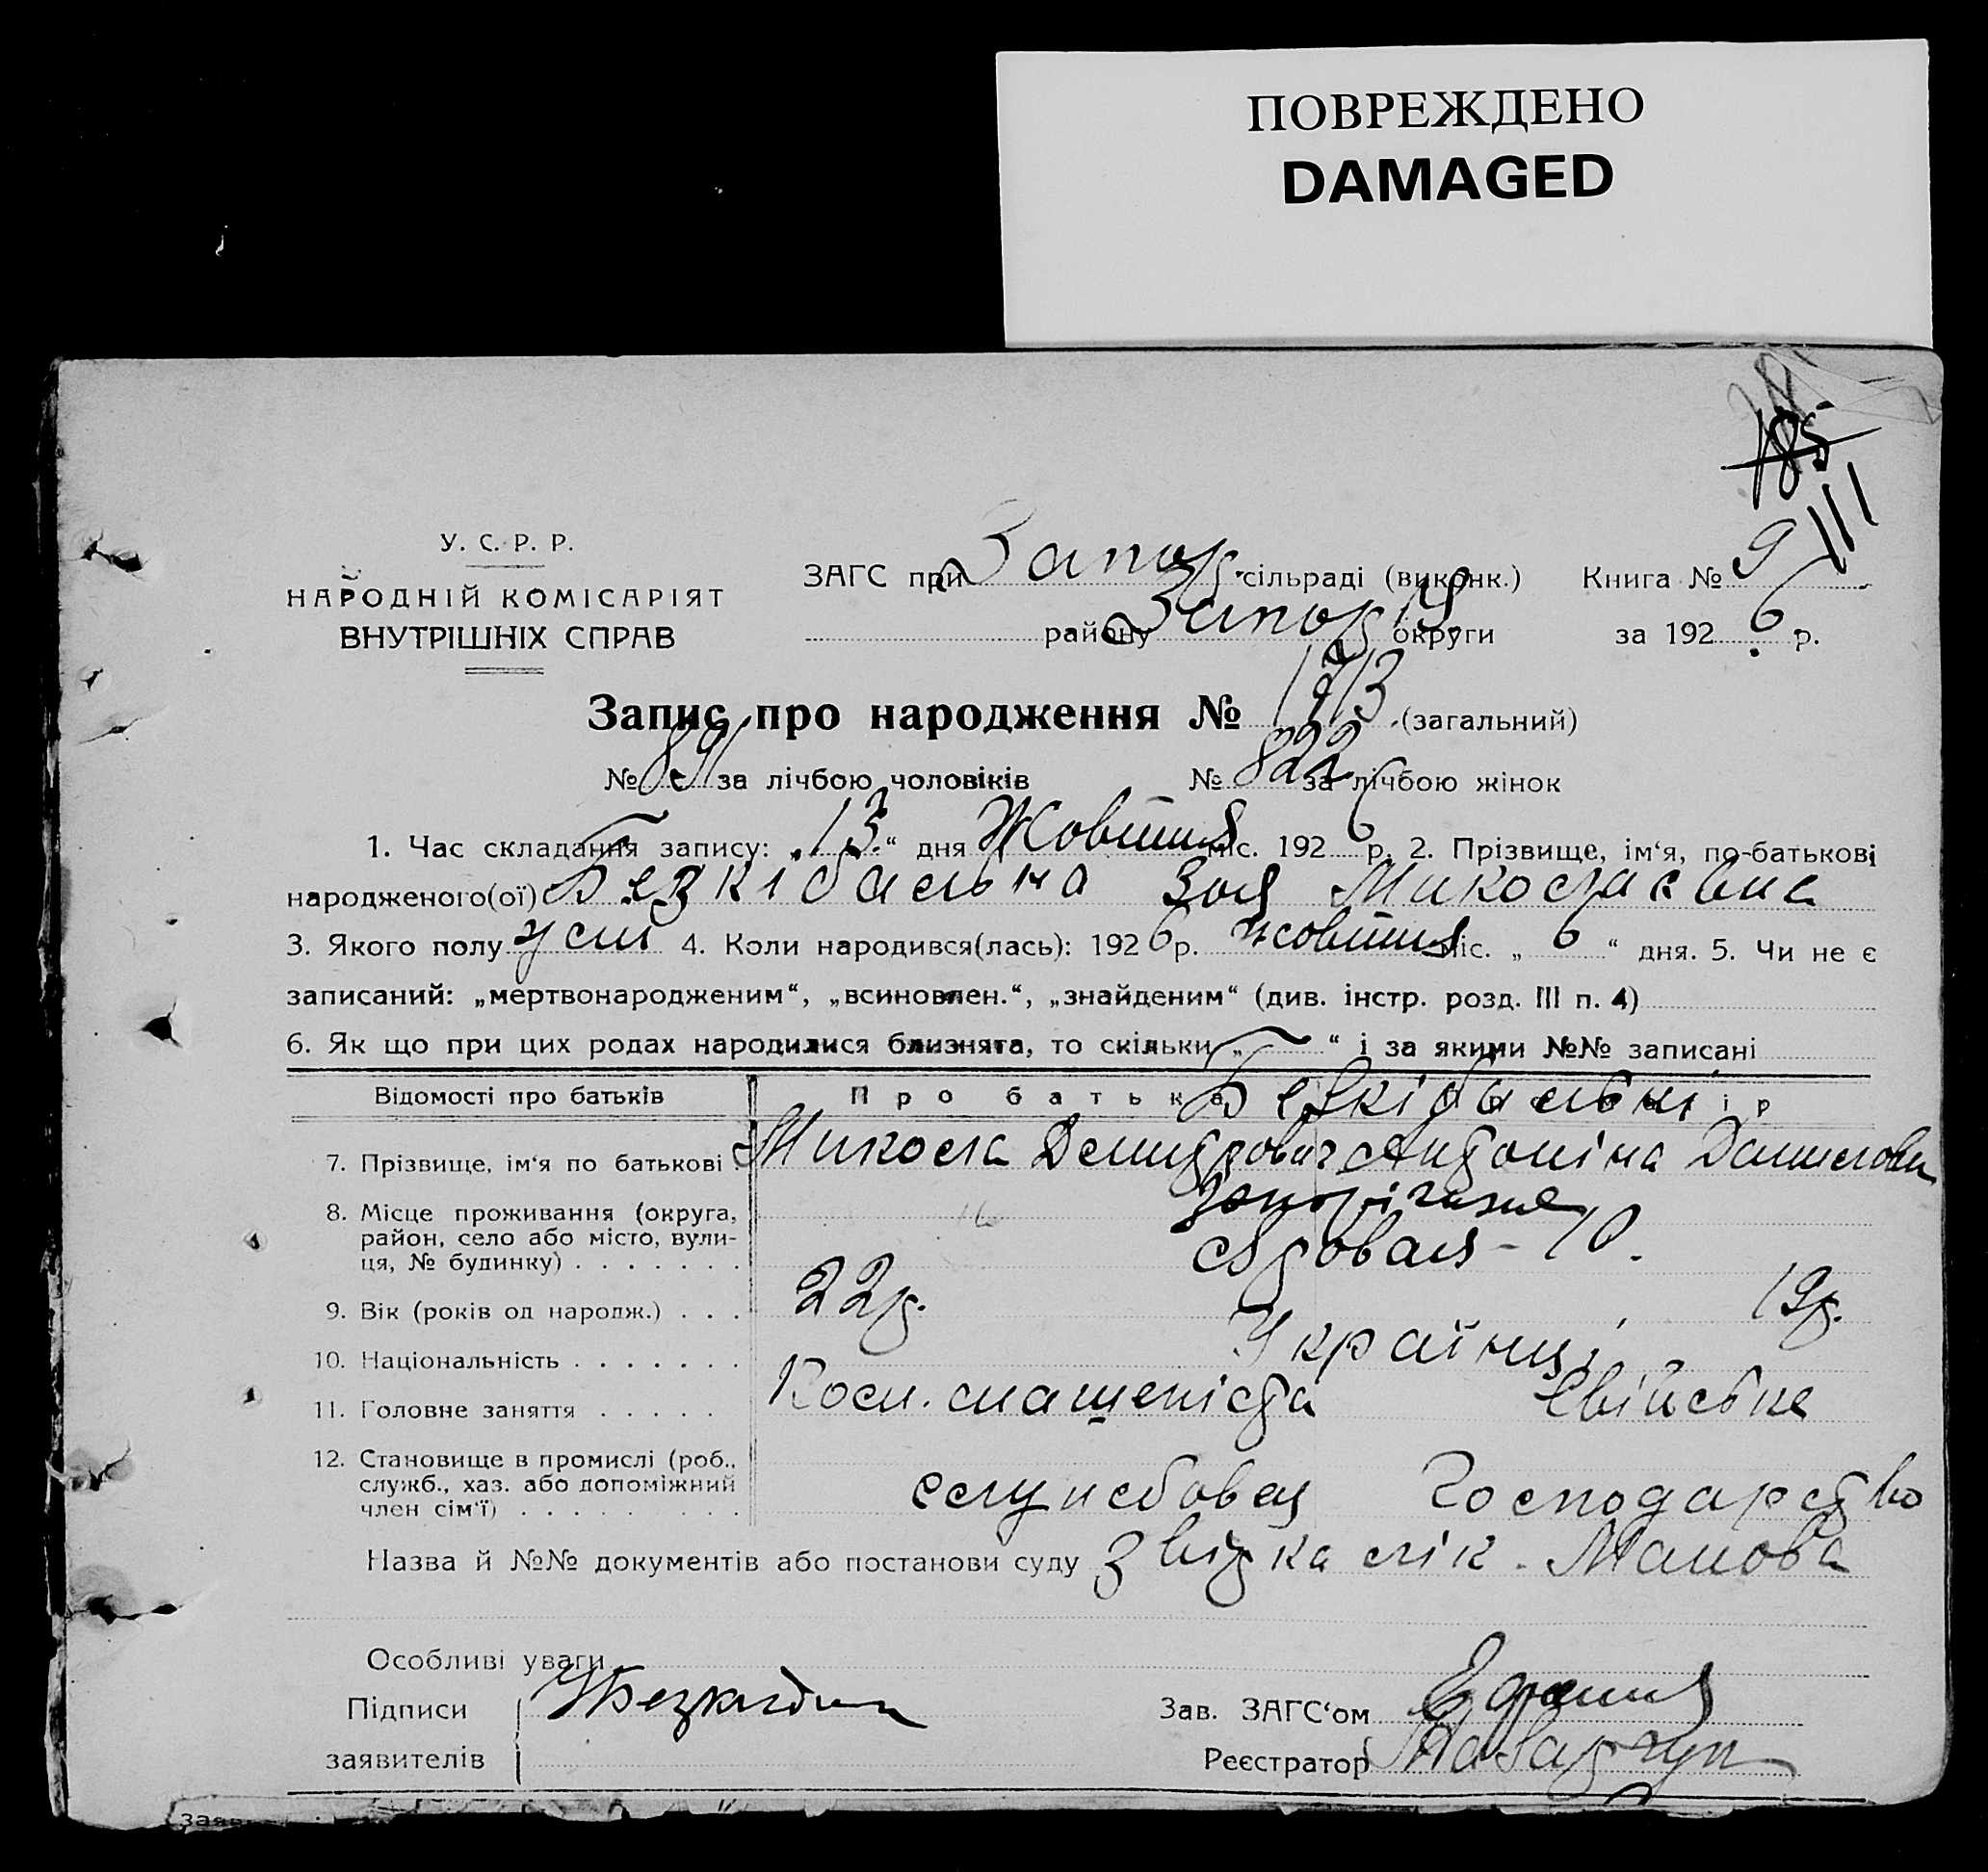 ПОВРЕЖДЕНО
DAMAGED
185
111
У. С. Р. Р.
НАРОДНІЙ КОМІСАРІЯТ
ВНУТРІШНІХ СПРАВ
ЗАГС при Запор. сільраді (виконк.) Книга № 9
району Запоріз. округи за 1926 р.
Запис про народження № 1713 (загальний)
№ 891 за лічбою чоловіків № 822 за лічбою жінок
1. Час складання запису: „13“ дня Жовтня міс. 1926 р. 2. Прізвище, ім‘я, по-батькові
народженого(ої) Безкібальна Зоя Миколаєвна
3. Якого полу жін 4. Коли народився(лась): 1926 р. жовтня міс. „6“ дня. 5. Чи не є
записаний: „мертвонародженим“, „всиновлен.“, „знайденим“ (див. інстр. розд. III п. 4)
6. Як що при цих родах народилися близнята, то скільки „ — “ і за якими №№ записані
Відомості про батьків Про батька Безкібальні
7. Прізвище, ім‘я по батькові Микола Демидович Антоніна Даниловн
8. Місце проживання (округа, Запоріжжя
район, село або місто, вули-
ця, № будинку) . . . . . . . Садовая - 10.
9. Вік (років од народж.) . . . 22р. 19р.
10. Національність . . . . . . . Українці
11. Головне заняття . . . . . Свійське
12. Становище в промислі (роб.,
служб., хаз. або допоміжний
член сім‘ї) . . . . службовец Господарство
Назва й №№ документів або постанови суду Звідка лік.
Особливі уваги
Підписи
заявителів
Зав. ЗАГС‘ом
Реєстратор